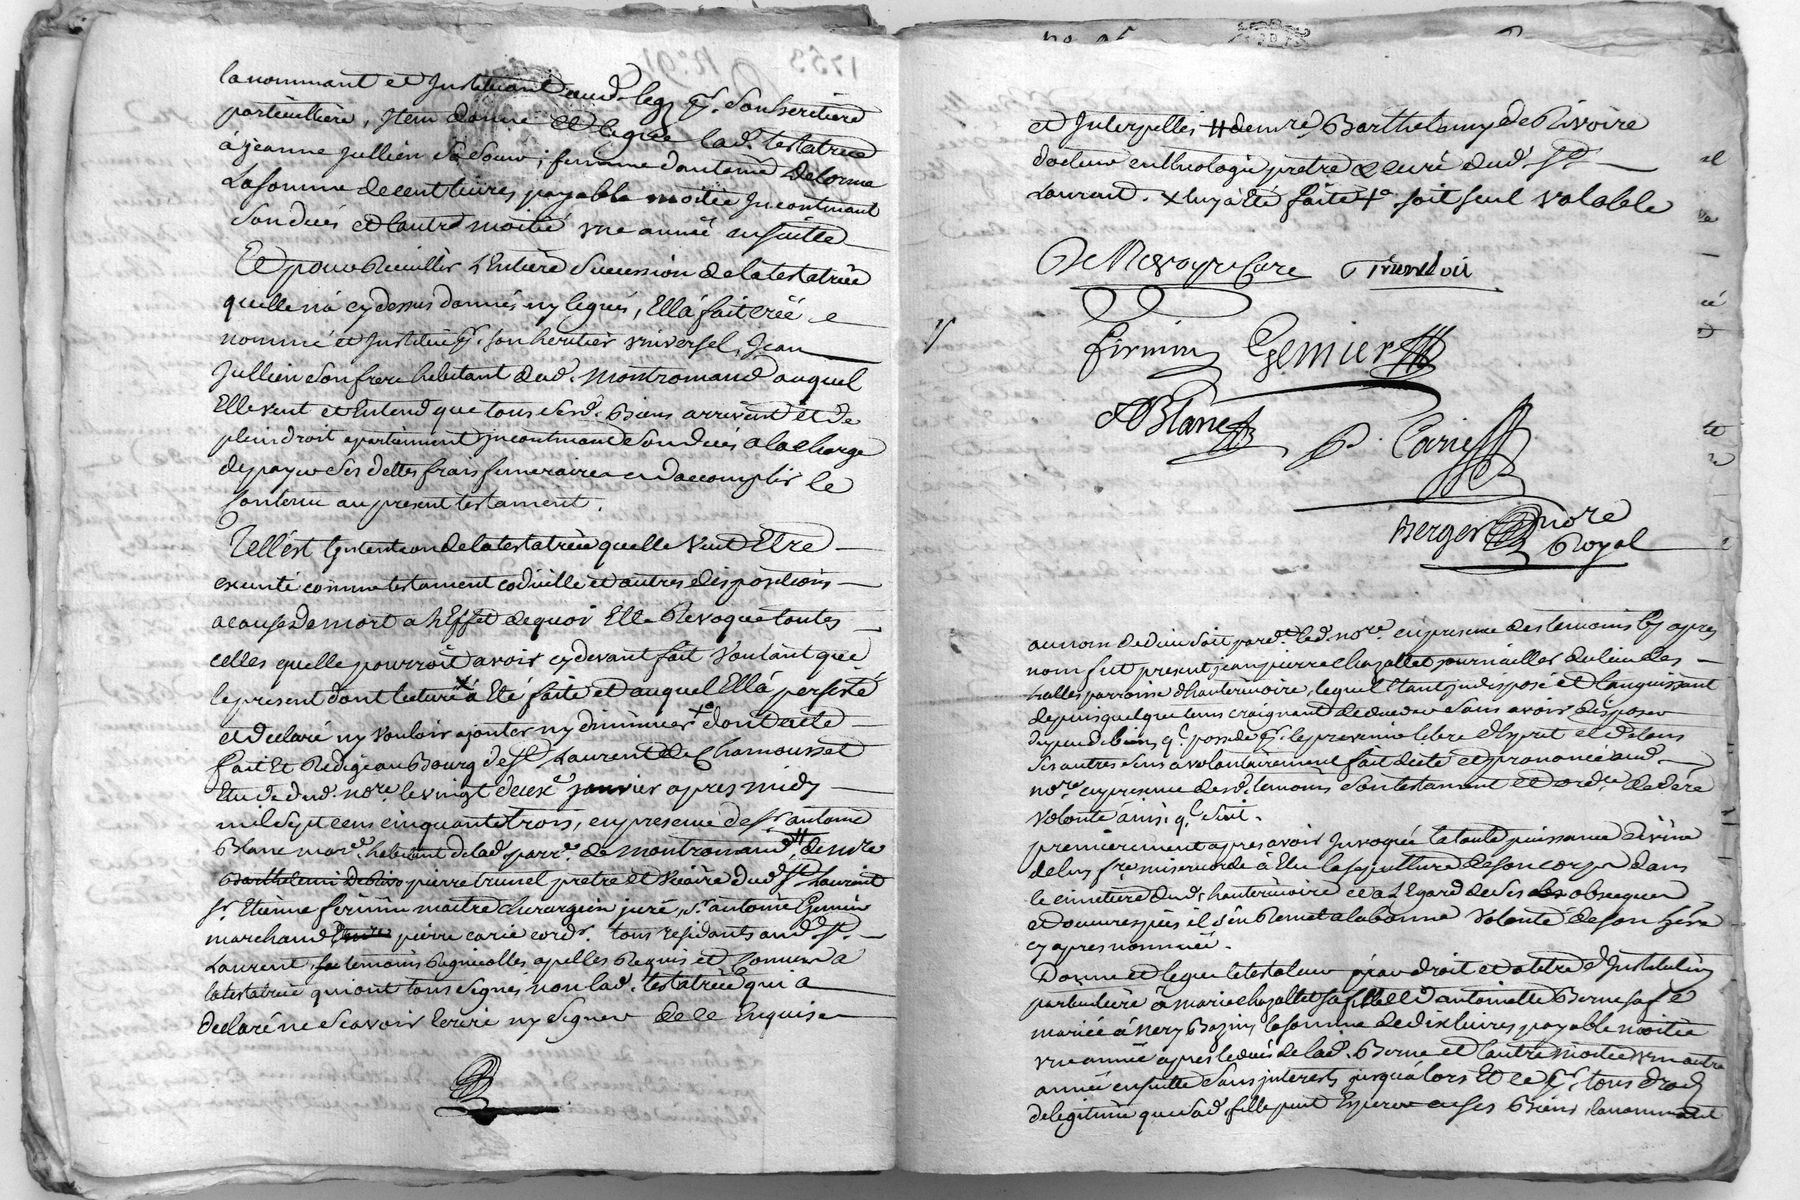 la nommant et Instituant aud. leg pr. son heritiere
particulliere, Item donne et legue lad. testatrice
à jeanne jullien sa soeur, femme d'antoine delorme
la somme de cent livres payable moitié Incontinant
son decés et l'autre moitié une année ensuitte
Et pour Recuillir l'Entiere sucession de la testatrice
quelle n'a cy dessus donnés ny legués, Ella fait créé
nommé et Institué pr. son heritier universel, Jean
Jullien son frere habitant dud. Montromand auquel
Elle veut et Entend que tous sesd. Biens arrivent et de
plein droit apartiennent jncontinant son decés a la charge
de payer ses dettes frais funeraires et d'accomplir le
Contenu au present testament.
Tell'est l'jntention de la testatrice quelle veut Etre
executé comme testament codicille et autres dispositions
a cause de mort a l'Effet de quoi Elle Revoque toutes
celles quelle pourroit avoir cy devant fait voulant que
le present dont lecture x a Eté faite et auquel Ella persisté
et declaré ny vouloir ajouter ny diminuer dont acte
fait Et Redigé au Bourg de St Laurent de Chamousset
Etude dud. nore. le vingt deuxe janvier apres midy
mil sept cens cinquante trois, en presence de sr. antoine
Blanc mard. habitant de lad. parre. de montromand # de mre
Barthelemi de Rivo pierre trunel pretre et vicaire dud. St Laurent
sr. Etienne firmin maitre chirurgien juré, sr. antoine Gemier
marchand pierre carie cordr. tous residants aud. St.
Laurent, temoins Regnicolles apellés Requis et Connus a
la testatrice qui ont tous signés non lad. testatrice qui a
declaré ne scavoir Ecrire ny signer de ce Enquise
1753
N° 91
et Interpellée # de mre. Barthelemy de Rivoire
docteur en theologie pretre & curé dud. St
Laurent. x luy a été faite soit seul valable
De Rivoyre Curé
firmin Gemier
Blanc P. Carie
Berger nore
Royal
au nom de dieu soit pardt. led. nore. en presence des temoins cy apres
nom fut present jean pierre chazallet journaillier du lieu des
halles parroisse d'hauterivoire, lequel Etant jndisposé et languissant
depuis quelque tems craignant de deceder sans avoir disposer
du peu de biens ql. possede pr. le prevenir libre d'Esprit et de tous
ses autres sens a volontairement fait dicté et prononcé aud.
nore. en presence desd. temoins son testament et ordce. de dere
volonté ainsi ql. suit.
premierement apres avoir Invoqué la toute puissance divine
de luy fre misericorde à Elu la sepulture de son corps dans
le cimetiere dud. hauterivoire et a l'Egard de ses obseques
et oeuvres pies il s'en Remet a la bonne volonté de son here
cy apres nommée.
Donne et legue le testateur par droit et a titre d'Institution
particuliere à marie chazallet sa fille d'antoinette Berne safe
mariée à la somme de dix livres payable moitié
une année apres le decés de lad. Berne et l'autre moitié une autre
année ensuitte sans jnterets jusqu'a lors Et ce pr. tous droits
de legitime que sad. fille peut Esperer en ses Biens, la nommant